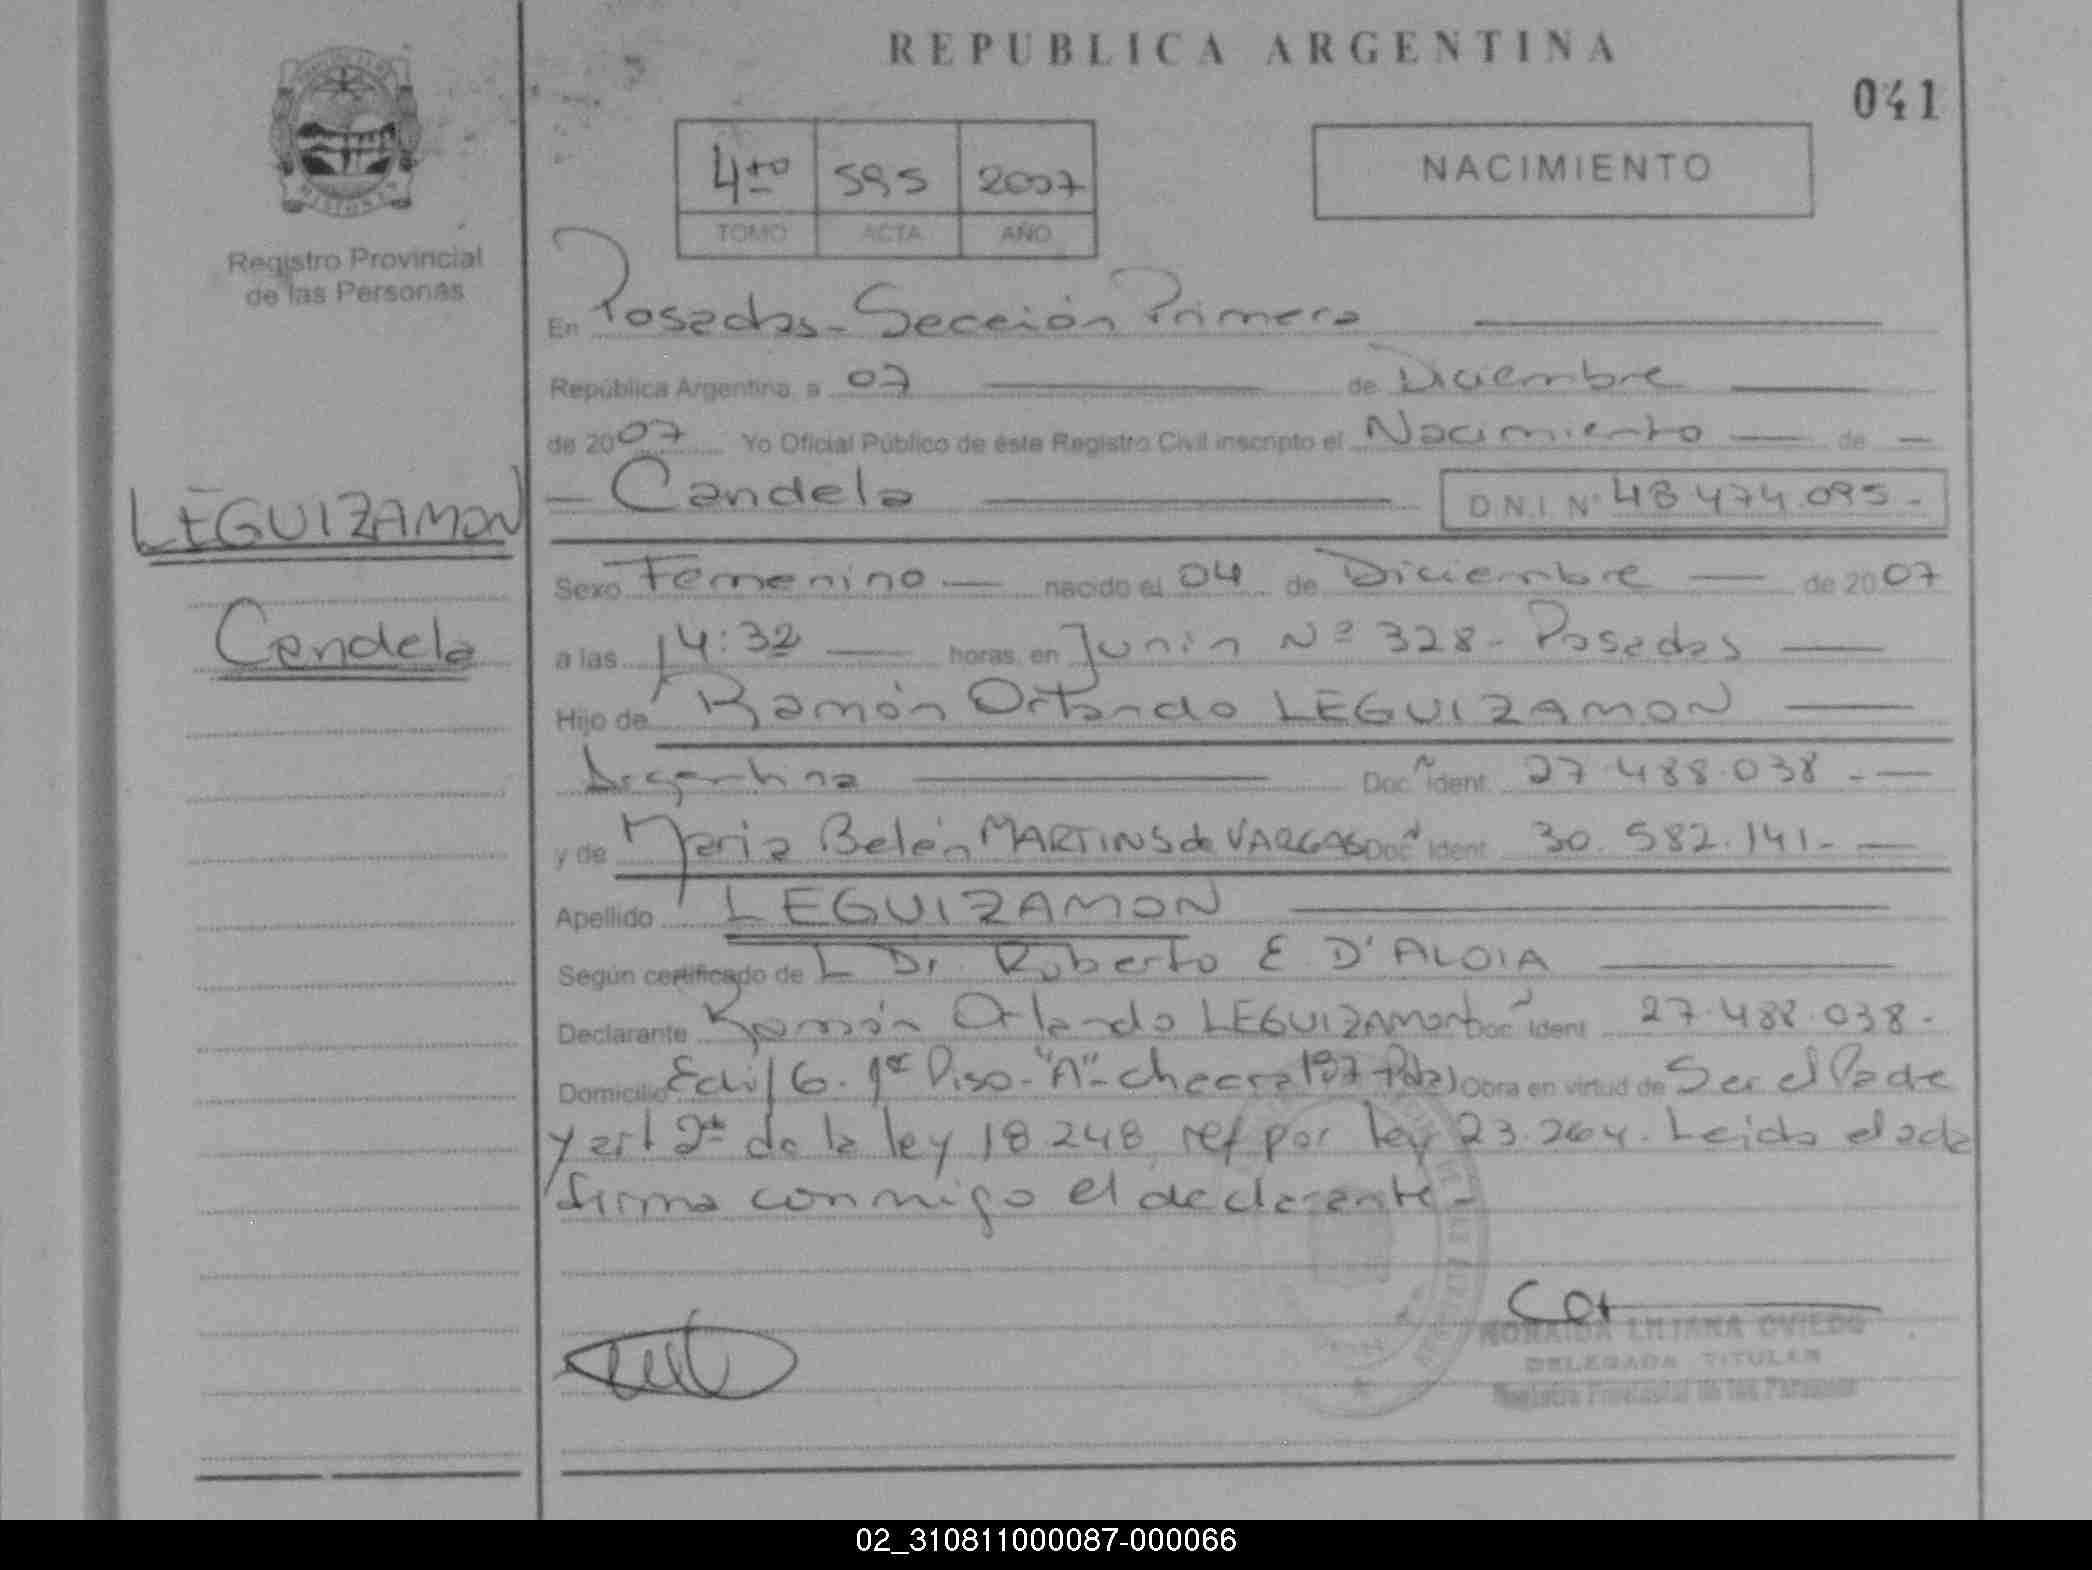 REPUBLICA ARGENTINA
041
4to 595 2007
TOMO ACTA AÑO
NACIMIENTO
Registro Provincial
de las Personas
En Posadas - Sección Primera
República Argentina, a 07 de Diciembre
de 2007 Yo Oficial Público de éste Registro Civil inscripto el Nacimiento de
LEGUIZAMON
Candela
Candela D.N.I. Nº 48.474.095.-
Sexo Femenino nacido el 04 de Diciembre de 2007
a las 14:32 horas, en Junin Nº 328 - Posadas
Hijo de Ramón Orlando LEGUIZAMON
Argentina Doc. Ident. 27.488.038.-
y de Maria Belén MARTINS de VARGAS Doc. Ident. 30.582.141.-
Apellido LEGUIZAMON
Según certificado de Dr. Roberto E. D'ALOIA
Declarante Ramón Orlando LEGUIZAMON Doc. Ident. 27.488.038.-
Domicilio Edif 6. 1er Piso - "A" - chacra 197 - Pdas) Obra en virtud de Ser el Padre
y art 2do de la ley 18.248, ref por ley 23.264. Leida el acta
firma conmigo el declarante -
LILIANA OVIEDO
DELEGADA TITULAR
Registro Provincial de las Personas
02_310811000087-000066